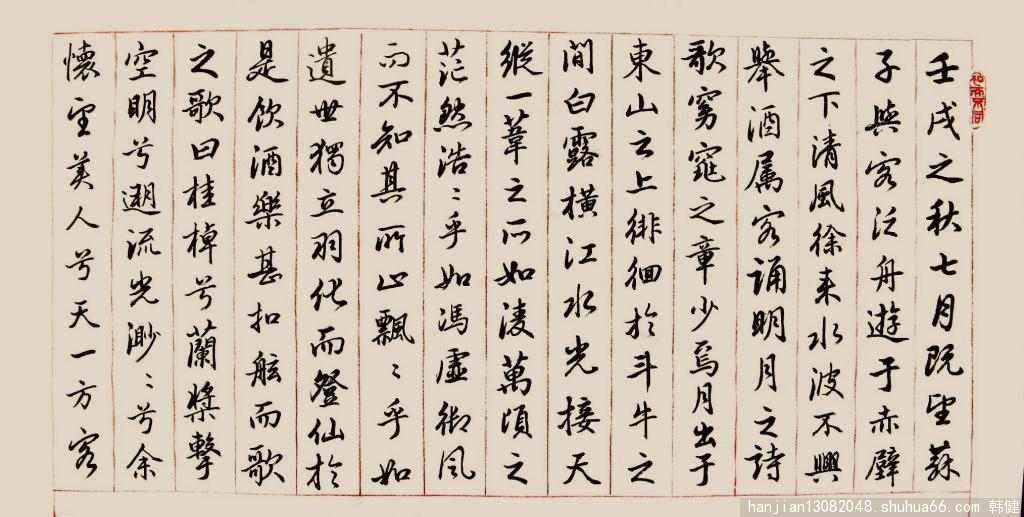 壬戌之秋七月既望蘇
子與客泛舟遊于赤壁
之下清風徐来水波不興
舉酒属客誦明月之詩
歌窈窕之章少焉月出于
東山之上徘徊於斗牛之
間白露橫江水光接天
縱一葦之所如淩萬頃之
茫然浩〻乎如馮虛御风
而不知其所止飄〻乎如
遺世獨立羽化而登仙於
是飲酒樂甚扣舷而歌
之歌曰桂棹兮蘭槳擊
空明兮遡流光渺〻兮余
懷望美人兮天一方客
hanjian13082048.shuhua66.com 韩健